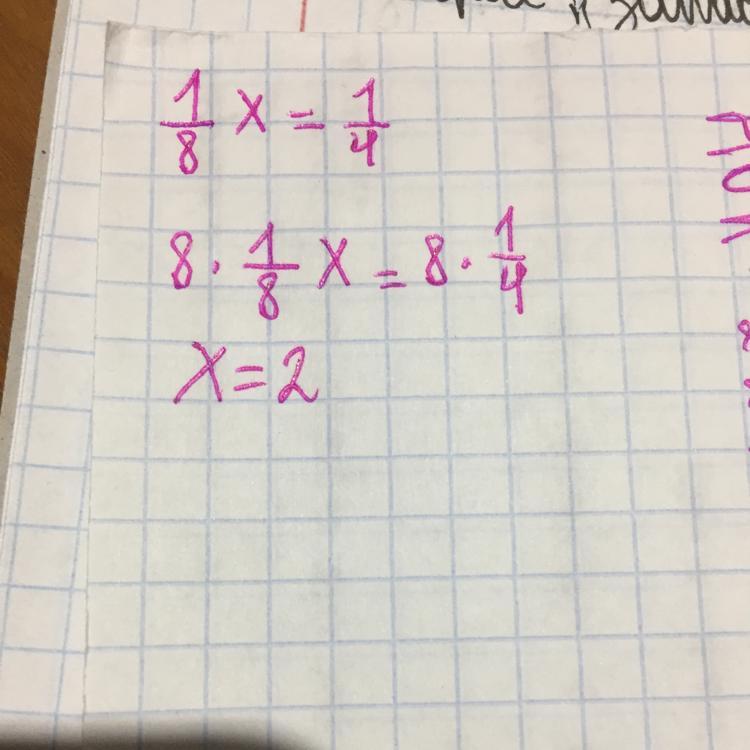 1/8 x = 1/4
8 · 1/8 x = 8 · 1/4
x = 2